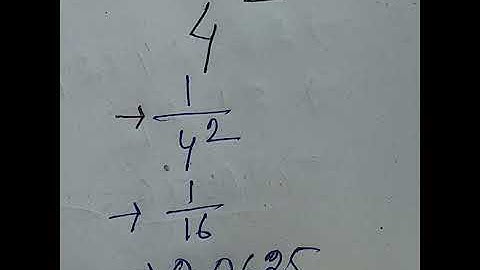 4
→ 1/4²
→ 1/16
→ 0.0625